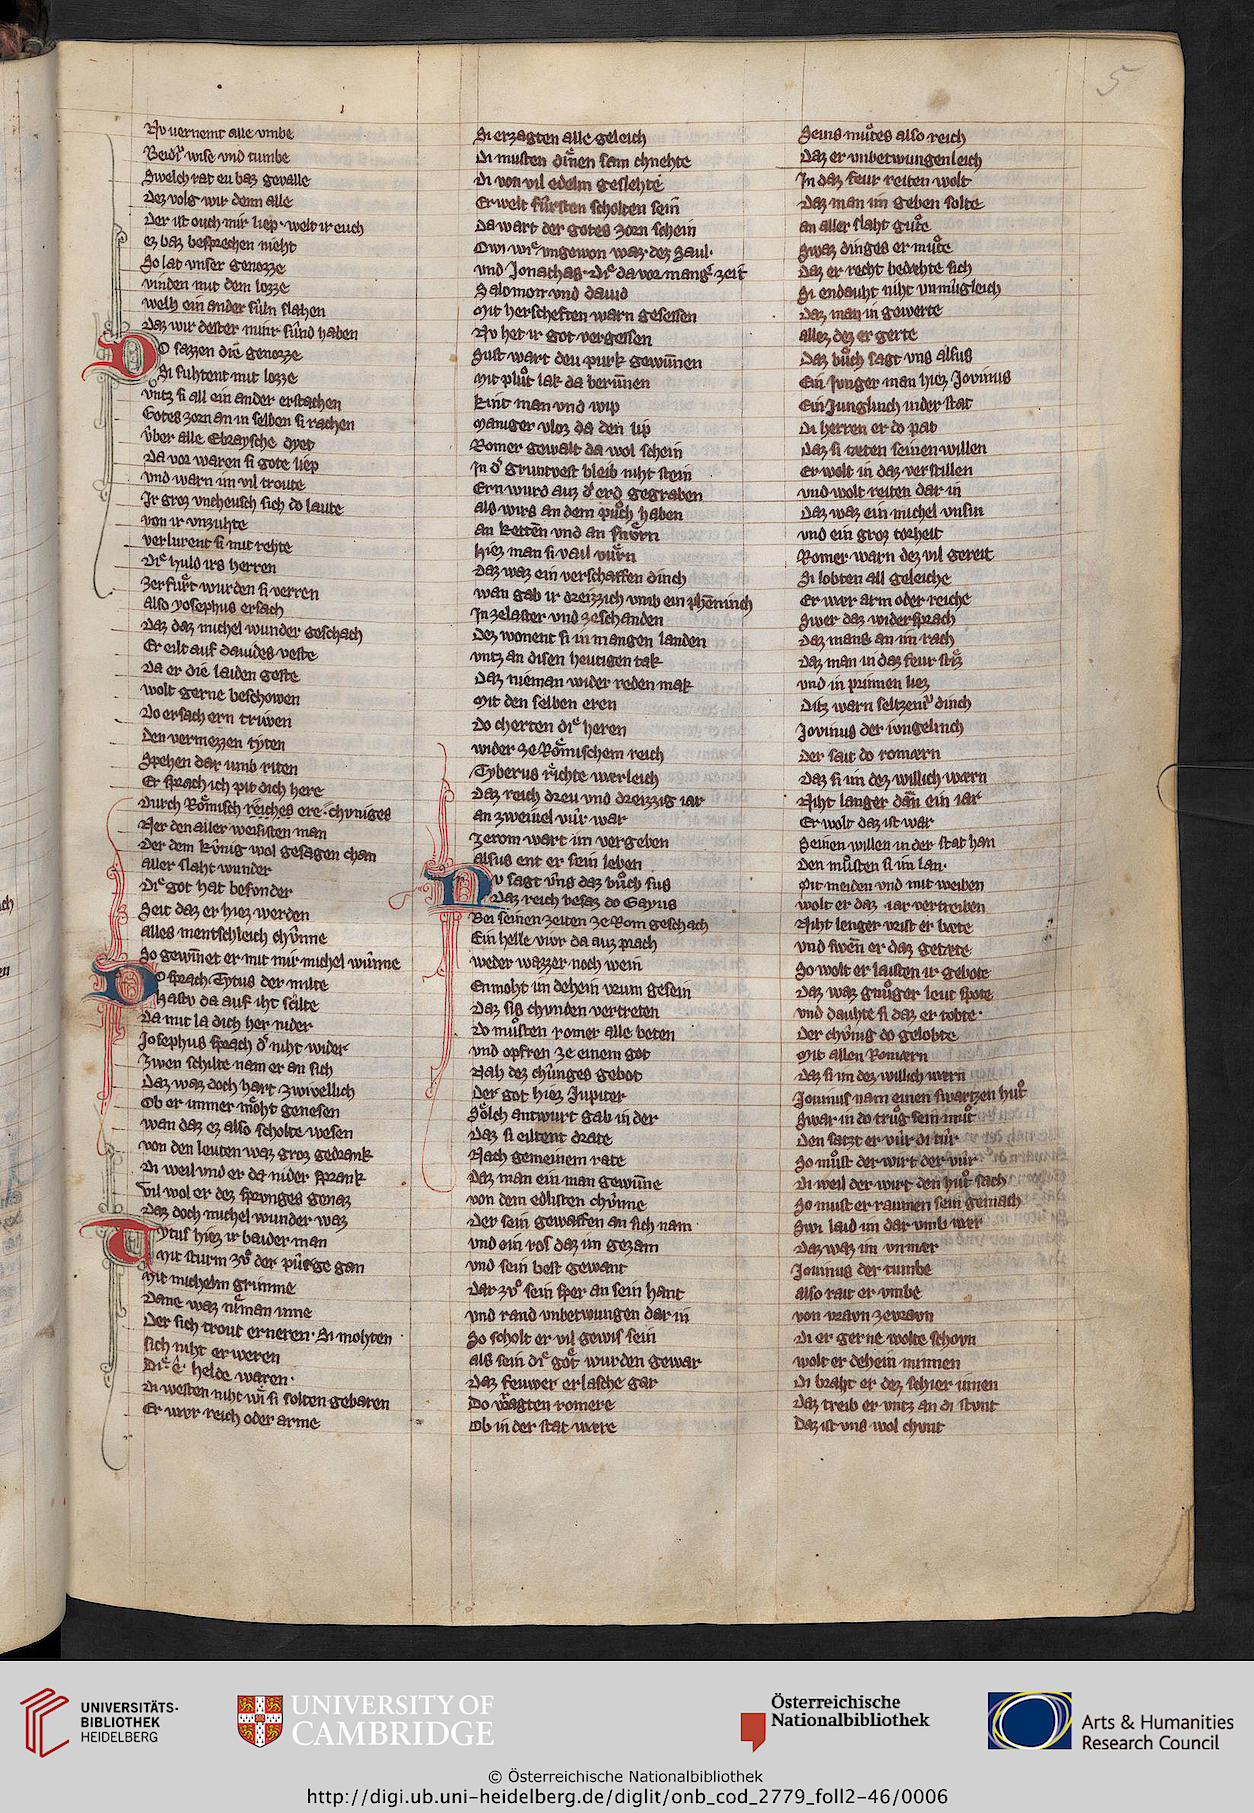 5
Nv uernemt alle vmbe
Beidiv wise vnd tumbe
Swelch rat eu baz geualle
Dez volg wir denn alle
Der ist ouch mir liep · welt ir euch
ez baz besprechen nieht
So lat vnser genozze
vinden mit dem lozze
welh ein ander suln slahen
Daz wir dester minr sund haben
Do sazzen die genozze
Si suhtent mit lozze
vntz si all ein ander erstachen
Gotes zorn an in selben si rachen
vber alle Ebraysche dyet
Da vor waren si gote liep
vnd warn im vil troute
Ir groz vncheusch sich do laute
von ir vnzuhte
verlurent si mit rehte
Die huld irs herren
zerfurt wurden si verren
Also yosephus ersach
Daz daz michel wunder geschach
Er eilt auf dauides veste
Da er die laiden geste
wolt gerne beschowen
Do ersach ern triwen
Den vermezzen tyten
Spehen dar vmb riten
Er sprach ich pit dich here
Durch Römisch reiches ere · chvniges
Ner den aller weisisten man
Der dem kvnig wol gesagen chan
aller slaht wunder
Die got hat besvnder
Seit daz er hiez werden
alles mentschleich chvnne
So gewinnet er mit mir michel wunne
Do sprach Tytus der milte
Hastv da auf iht schilte
Da mit la dich her nider
Josephus sprach der niht wider
Zwen schilte nam er an sich
Daz waz doch hart zwivellich
Ob er immer möht genesen
wan daz ez also scholte wesen
von den leuten waz groz gedrank
Di weil vnd er da nider sprank
vil wol er dez sprvnges genaz
Daz doch michel wunder waz
Tytus hiez ir baider man
Mit sturm zv der pürge gan
Mit michelm grimme
Dane waz nieman inne
Der sich trout erneren · Si mohten
sich niht erweren
Die e helde waren ·
Di westen niht wi si solten gebaren
Er wer reich oder arme
Si erzagten alle geleich
Di musten dinen sam chnehte
Di von vil edelm geslehte
Erwelt fürsten scholten sein
Da wart der gotes zorn schein
Owi wie vngewon waz dez Saul ·
vnd Jonathas · die da vor mange zeit
Salomon vnd dauid
Mit herscheften warn gesessen
Nv het ir got vergessen
Sust wart deu purk gewunnen
Mit plut lak da berunnen
kint man vnd wip
Maniger vloz da den lip
Romer gewalt da wol schein
In der gruntvest bleib niht stein
Ern wurd auz der erd gegraben
als wirs an dem puch haben
an ketten vnd an snorn
Hiez man si vail vuern
Daz waz ein verschaffen dinch
wan gab ir dreizzich vmb ein phenninch
In zelaster vnd zeschanden
Dez wonent si in mangen landen
vntz an disen heutigen tak
Daz nieman wider reden mak
Mit den selben eren
Do cherten die heren
wider ze Römischem reich
Tyberus richte werleich
Daz reich dreu vnd dreizzig iar
an zweiuel vür war
Zerom wart im vergeben
alsus ent er sein leben
Nv sagt vns daz buch sus
Daz reich besaz do Gayus
Bei seinen zeiten ze Rom geschach
Ein helle viwr da auz prach
weder wazzer noch wein
Enmoht im dehein vrum gesein
Daz sis chvnden vertreten
Do musten romer alle beten
vnd opfren ze einem got
Nah dez chunges gebot
Der got hiez Jupiter
Sölch antwurt gab in der
Daz si eiltent drate
Nach gemeinem rate
Daz man ein man gewunne
von dem edlisten chunne
Der sein gewaffen an sich nam
vnd ein ros daz im gezam
vnd sein best gewant
Dar zv sein sper an sein hant
vnd rand vnbetwungen dar in
So scholt er vil gewis sein
als sein die got wurden gewar
Daz feuwer erlasche gar
Do vragten romere
Ob in der stat were
Seins mutes also reich
Daz er vnbetwungenleich
In daz feur reiten wolt
Daz man im geben solte
an aller slaht gute
Swaz dinges er mute
Daz er recht bedehte sich
Si endauht niht vnmugleich
Daz man in gewerte
allez dez er gerte
Daz buch sagt vns alsus
Ein Junger man hiez Jovinus
Ein Junglinch in der stat
Di herren er do pat
Daz si teten seinen willen
Er wolt in daz verstillen
vnd wolt reiten dar in
Daz waz ein michel vnsin
vnd ein groz torheit
Romer warn dez vil gereit
Si lobten all geleiche
Er wer arm oder reiche
Swer daz widersprach
Daz mans an im rach
Daz man in daz feur stiz
vnd in prinnen liez
Ditz warn seltzeniv dinch
Jovinus der iungelinch
Der sait do romern
Daz si im dez willich wern
Niht langer dann ein iar
Er wolt daz ist war
Seinen willen in der stat han
Den musten si im lan ·
Mit meiden vnd mit weiben
wolt er daz iar vertreiben
Niht lenger vrist er bete
vnd swenn er daz getete
So wolt er laisten ir gebote
Daz waz gnuger leut spote
vnd dauhte si daz er tobte ·
Der chvnig do gelobte
Mit allen Romern
Daz si im dez willich wern
Jouinus nam einen swartzen hut
Swar in do trug sein mut
Den satzt er vür di tür
So must der wirt der vür
Di weil der wirt den hut sach
So must er raumen sein gemach
Swi laid im dar vmb wer
Daz waz im vnmer
Jouinus der tumbe
also rait er vmbe
von vravn ze vravn
Di er gerne wolte schovn
wolt er dehein minnen
Di braht er dez schier innen
Daz treib er vntz an di stvnt
Daz ist vns wol chvnt
UNIVERSITÄTS-
BIBLIOTHEK
HEIDELBERG
UNIVERSITY OF
CAMBRIDGE
Österreichische
Nationalbibliothek
Arts & Humanities
Research Council
© Österreichische Nationalbibliothek
http://digi.ub.uni-heidelberg.de/diglit/onb_cod_2779_foll2-46/0006